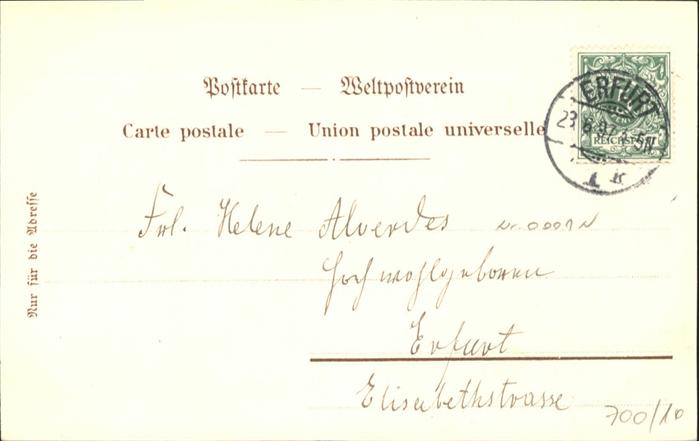 Postkarte — Weltpostverein
Carte postale — Union postale universelle
ERFURT
23 8 97 3-5N
1 k
REICHSPOST
Nur für die Adresse
Frl. Helene Alverdes
Hochwohlgeboren
Erfurt
Elisabethstrasse
700/10